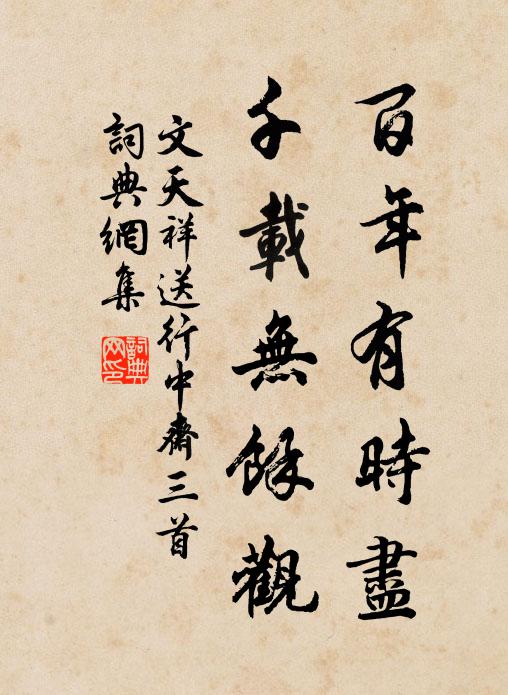 百年有時盡
千載無餘觀
文天祥送行中齋三首
詞典網集
詞典網印